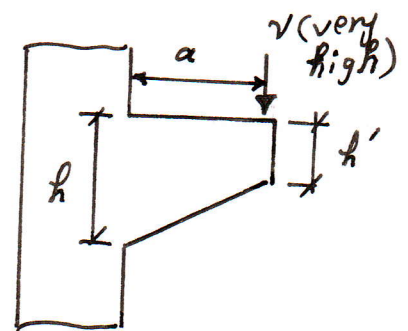 V (very
high)
a
h
h'